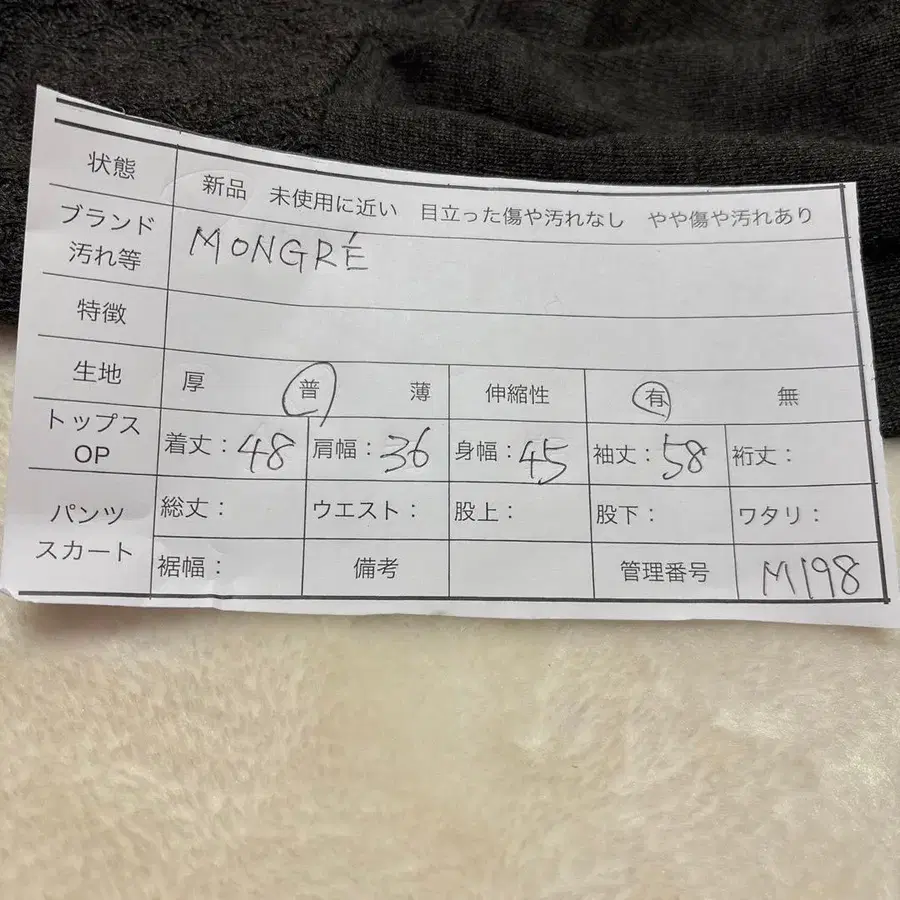 状態 新品 未使用に近い 目立った傷や汚れなし やや傷や汚れあり
ブランド
汚れ等 MONGRÉ
特徴
生地 厚 普 薄 伸縮性 有 無
トップス
OP 着丈：48 肩幅：36 身幅：45 袖丈：58 裄丈：
パンツ
スカート 総丈： ウエスト： 股上： 股下： ワタリ：
裾幅： 備考 管理番号 M198